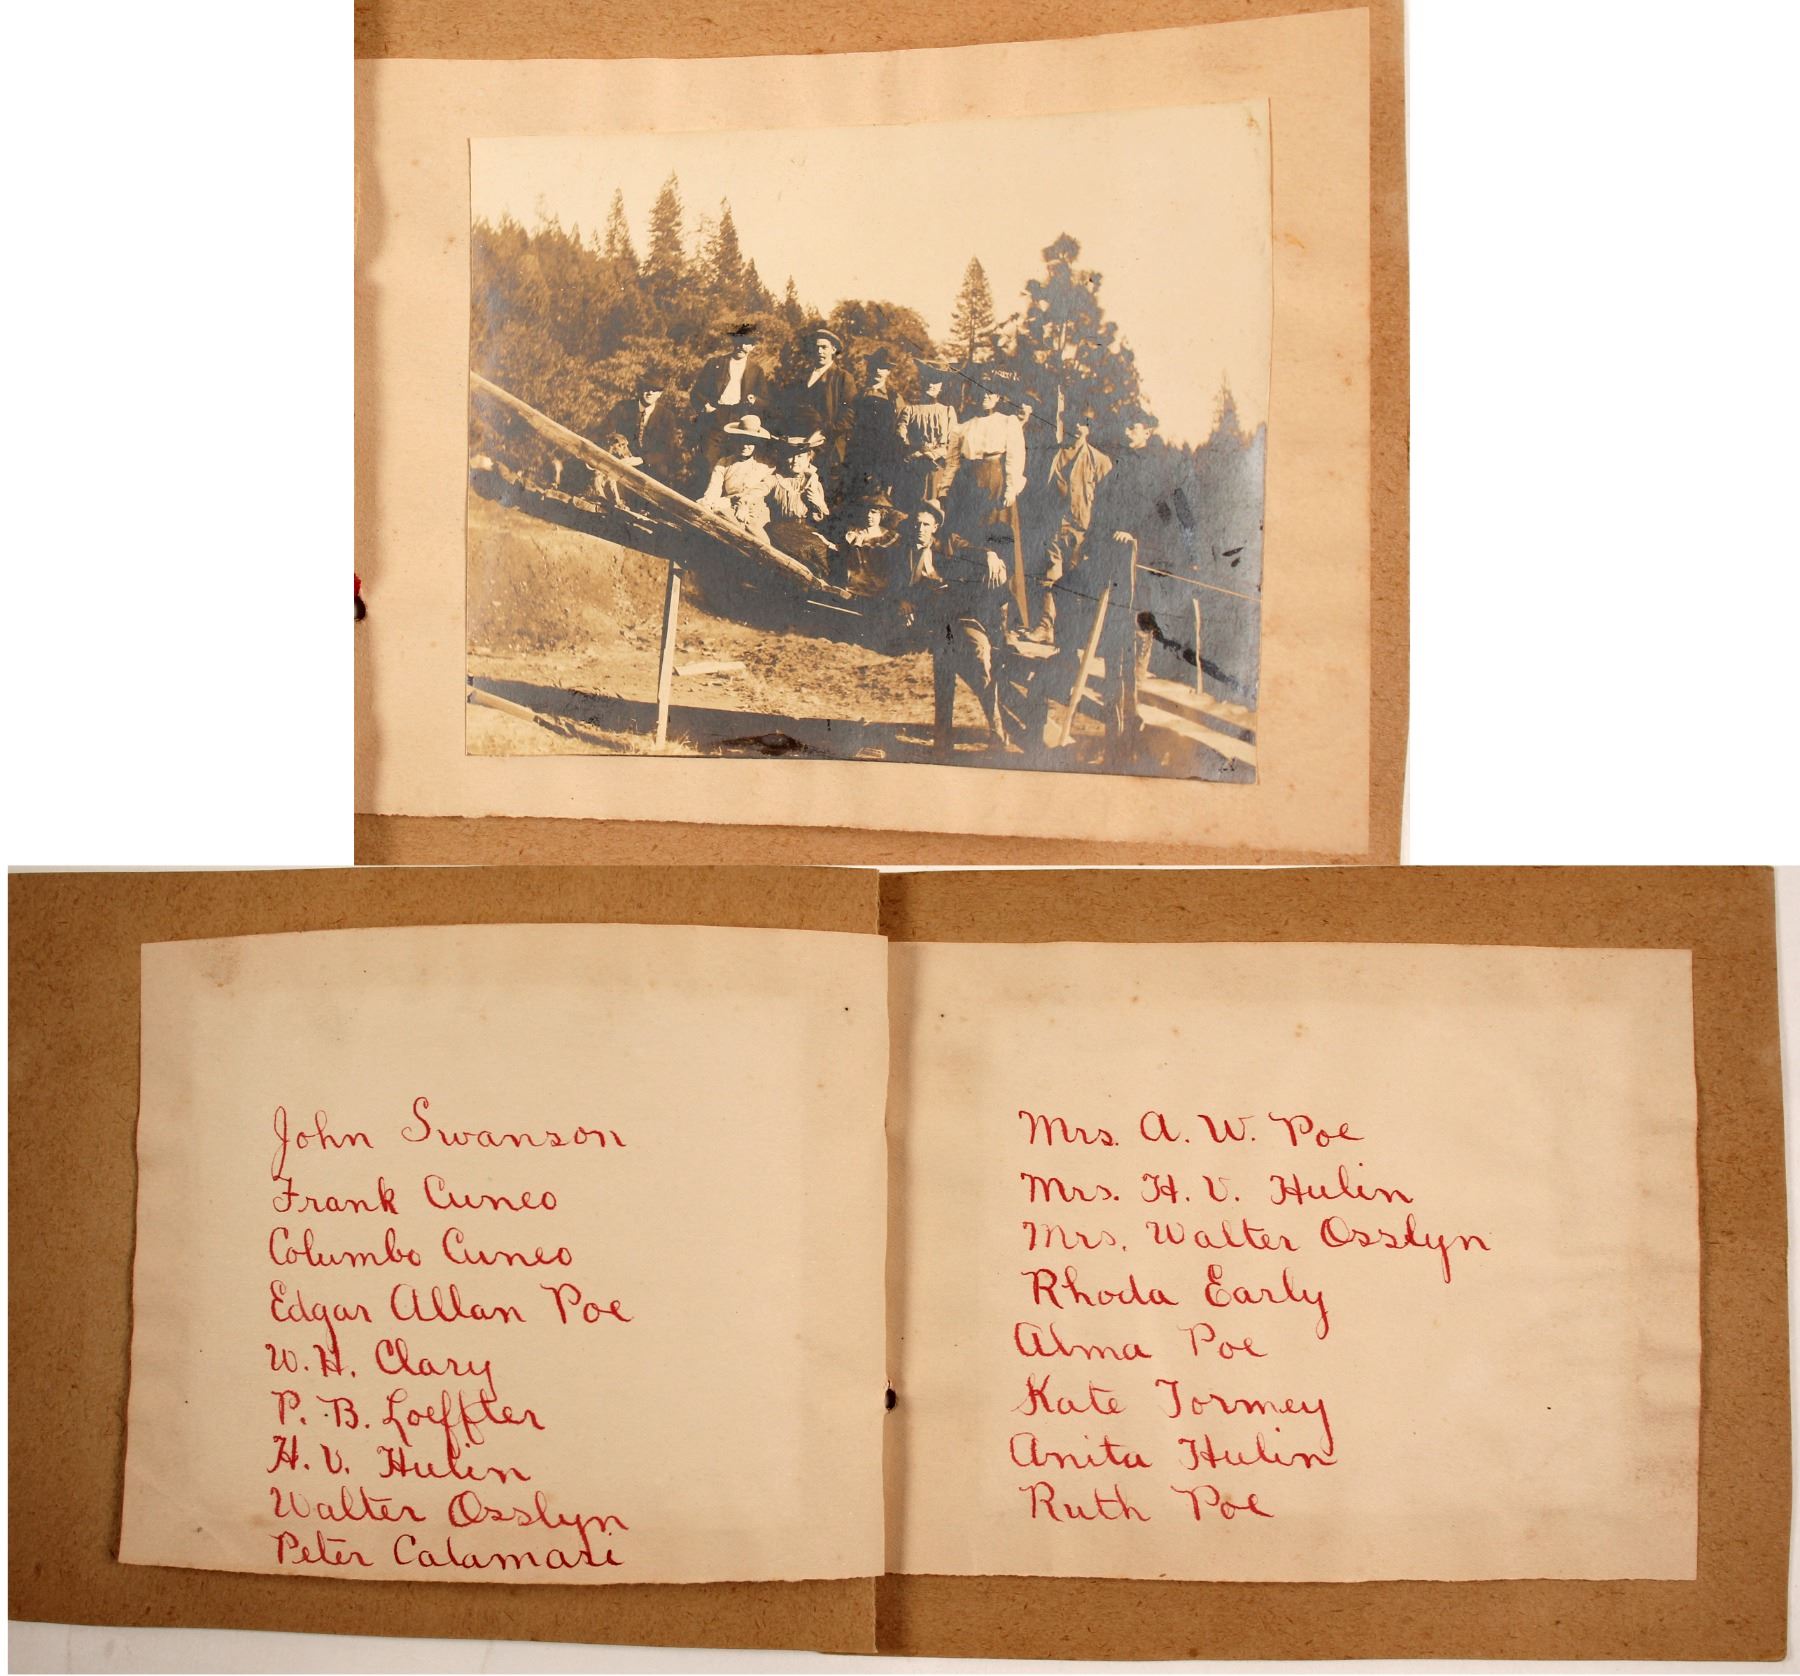 John Swanson
Frank Cuneo
Columbo Cuneo
Edgar Allan Poe
W. H. Clary
P. B. Loeffter
H. V. Hulin
Walter Osslyn
Peter Calamari
Mrs. A. W. Poe
Mrs. H. V. Hulin
Mrs. Walter Osslyn
Rhoda Early
Alma Poe
Kate Tormey
Anita Hulin
Ruth Poe